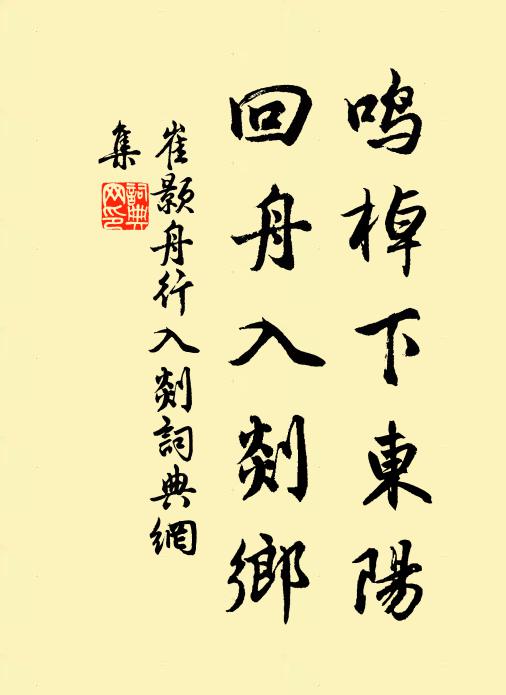 鳴棹下東陽
回舟入剡鄉
崔顥舟行入剡詞典網
集
詞典网印